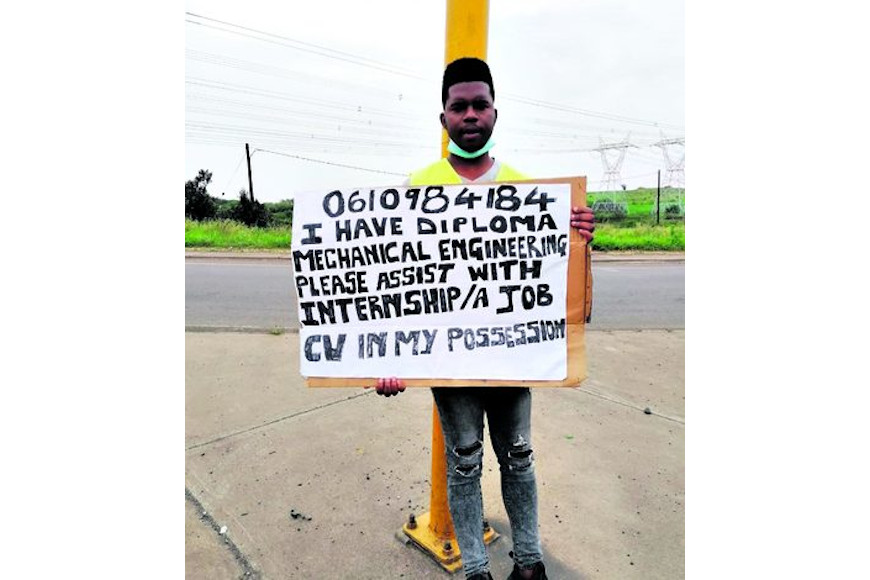 0610984184
I HAVE DIPLOMA
MECHANICAL ENGINEERING
PLEASE ASSIST WITH
INTERNSHIP/A JOB
CV IN MY POSSESSION